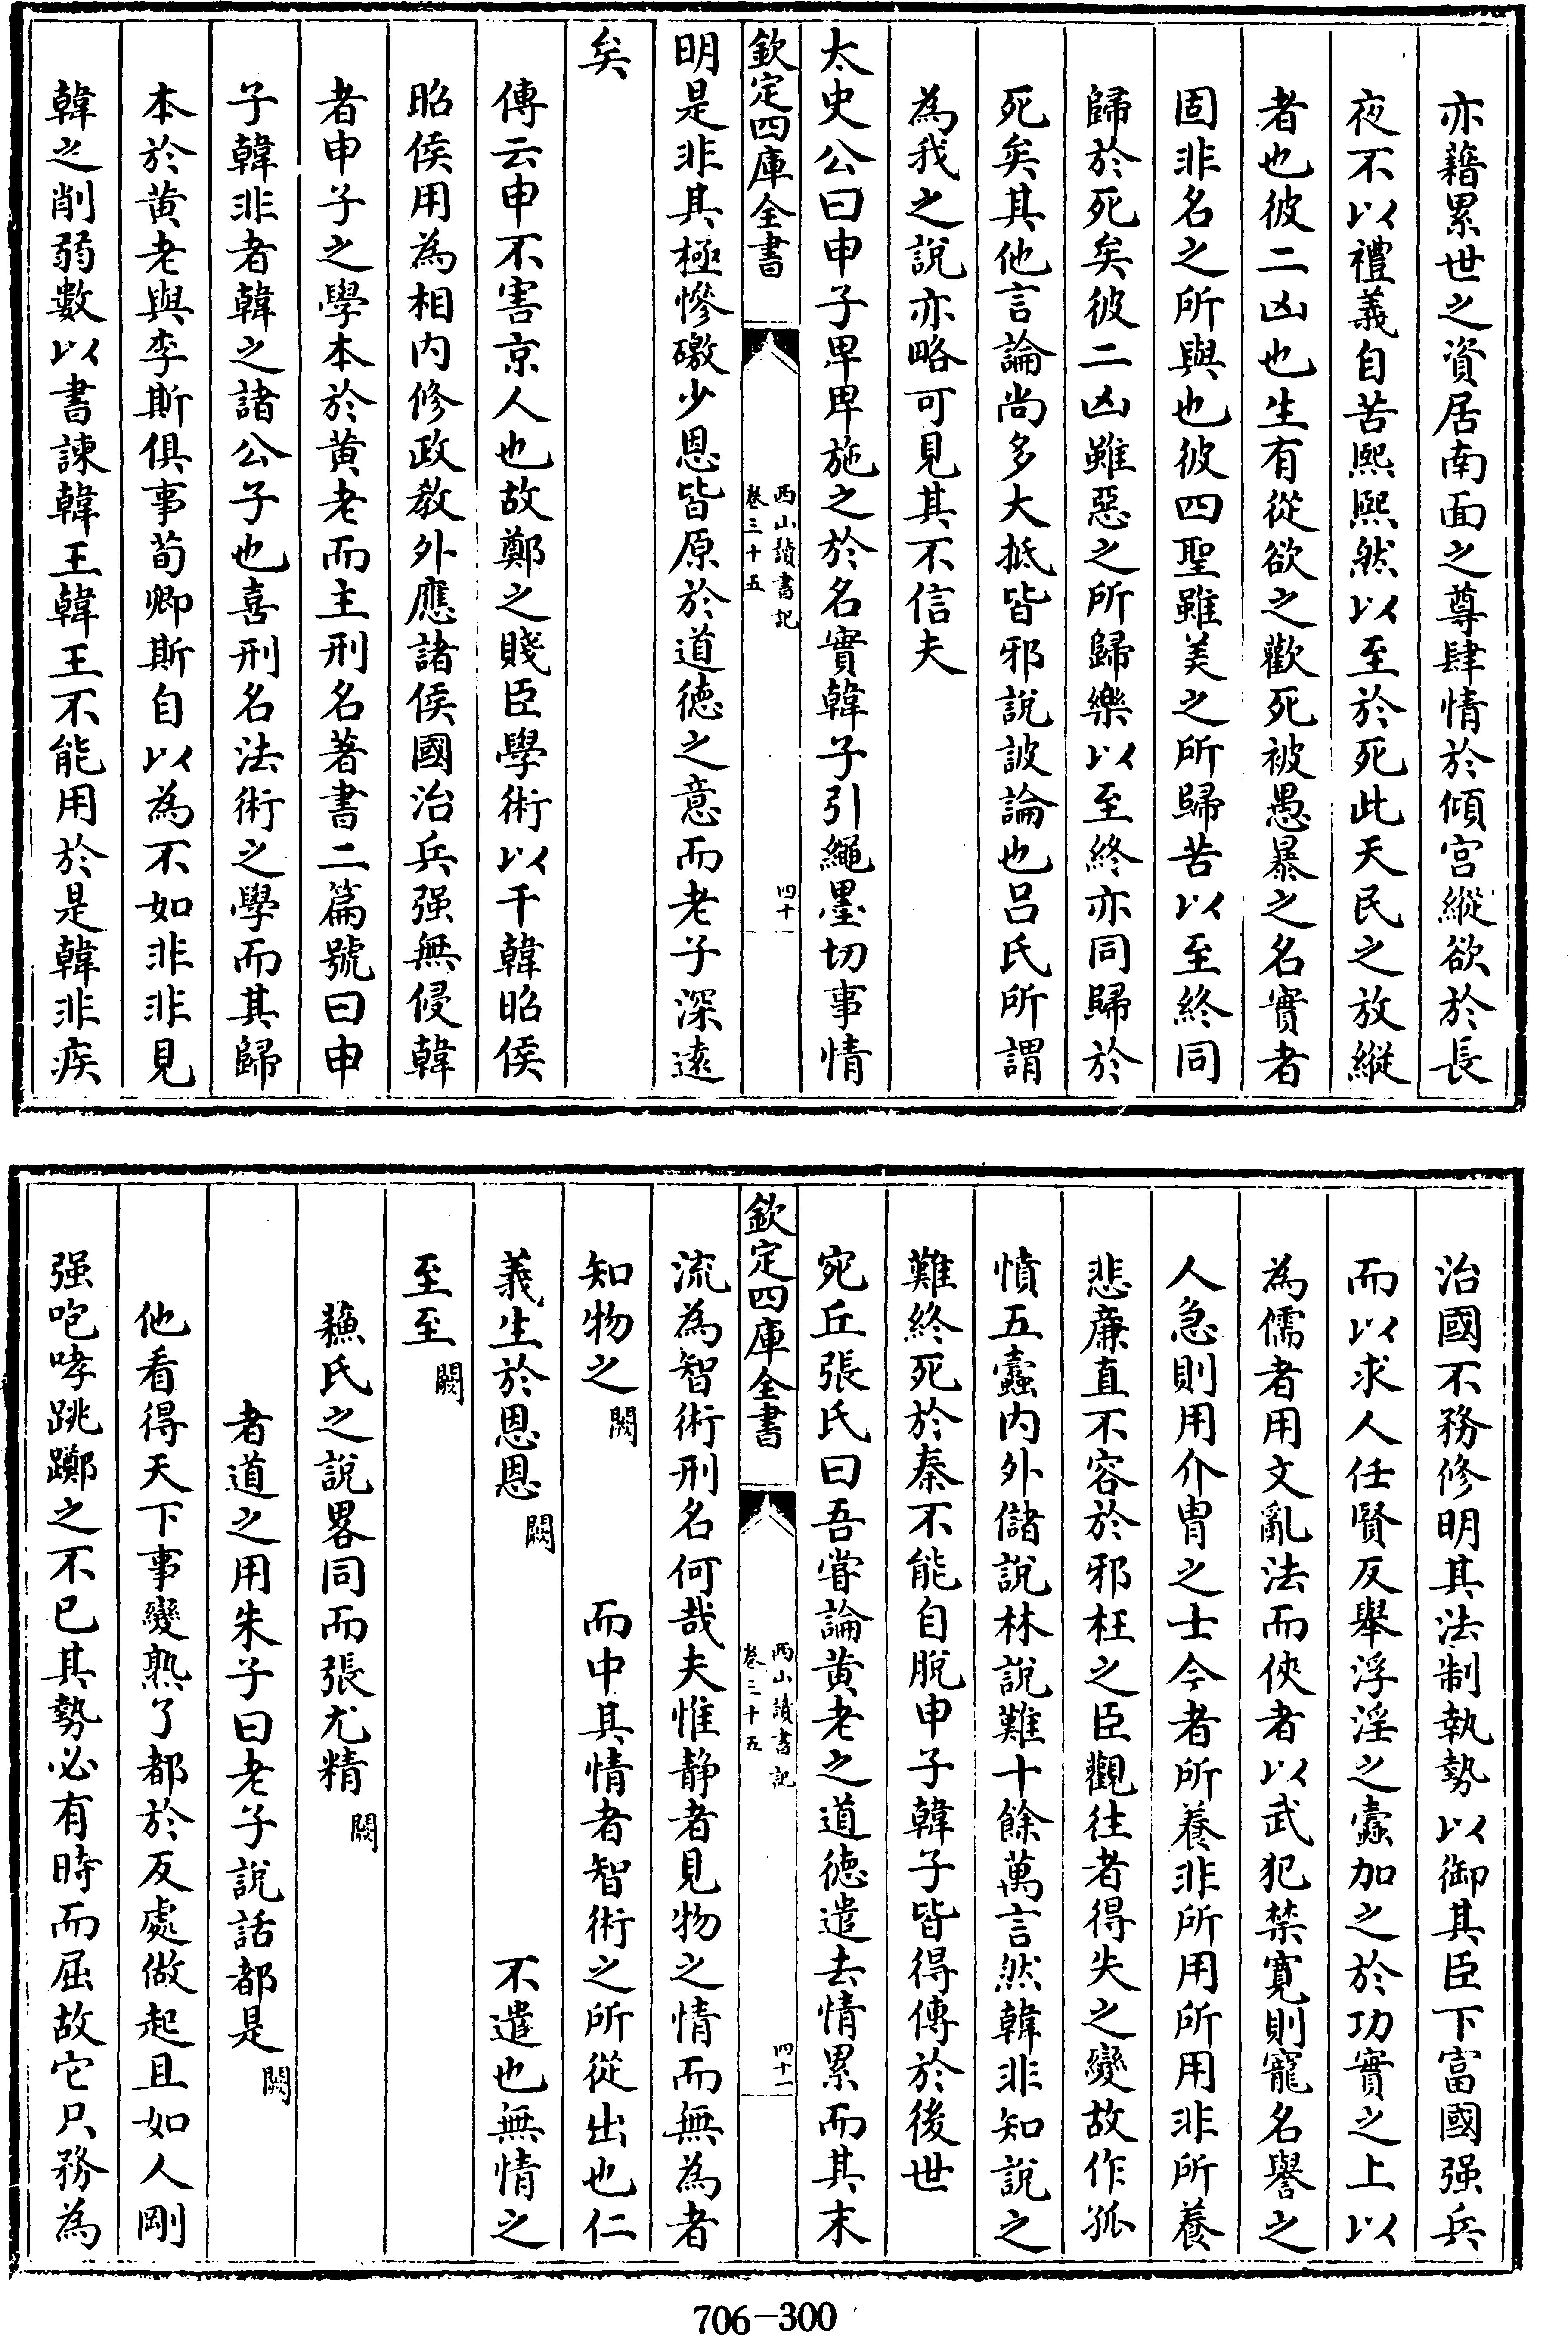 亦藉累世之資居南面之尊肆情於傾宫縱欲於長
夜不以禮義自苦熙熙然以至於死此天民之放縱
者也彼二凶也生有從欲之歡死被愚暴之名實者
固非名之所與也彼四聖雖美之所歸苦以至終同
歸於死矣彼二凶雖惡之所歸樂以至終亦同歸於
死矣其他言論尚多大抵皆邪說詖論也吕氏所謂
為我之說亦略可見其不信夫
太史公曰申子卑卑施之於名實韓子引繩墨切事情
欽定四庫全書
西山讀書記
卷三十五
四十
明是非其極慘礉少恩皆原於道徳之意而老子深遠
矣
傳云申不害京人也故鄭之賤臣學術以干韓昭侯
昭侯用為相内修政教外應諸侯國治兵强無侵韓
者申子之學本於黄老而主刑名著書二篇號曰申
子韓非者韓之諸公子也喜刑名法術之學而其歸
本於黄老與李斯俱事荀卿斯自以為不如非非見
韓之削弱數以書諫韓王韓王不能用於是韓非疾
治國不務修明其法制執勢以御其臣下富國强兵
而以求人任賢反舉浮淫之蠧加之於功實之上以
為儒者用文亂法而俠者以武犯禁寛則寵名譽之
人急則用介胄之士今者所養非所用所用非所養
悲廉直不容於邪枉之臣觀往者得失之變故作孤
憤五蠧内外儲說林說難十餘萬言然韓非知說之
難終死於秦不能自脫申子韓子皆得傳於後世
宛丘張氏曰吾嘗論黄老之道徳遣去情累而其末
欽定四庫全書
西山讀書記
卷三十五
四十一
流為智術刑名何哉夫惟静者見物之情而無為者
知物之闕 而中其情者智術之所從出也仁
義生於恩恩闕 不遣也無情之
至至闕
蘇氏之說畧同而張尤精闕
者道之用朱子曰老子說話都是闕
他看得天下事變熟了都於反處做起且如人剛
强咆哮跳躑之不已其勢必有時而屈故它只務為
706-300